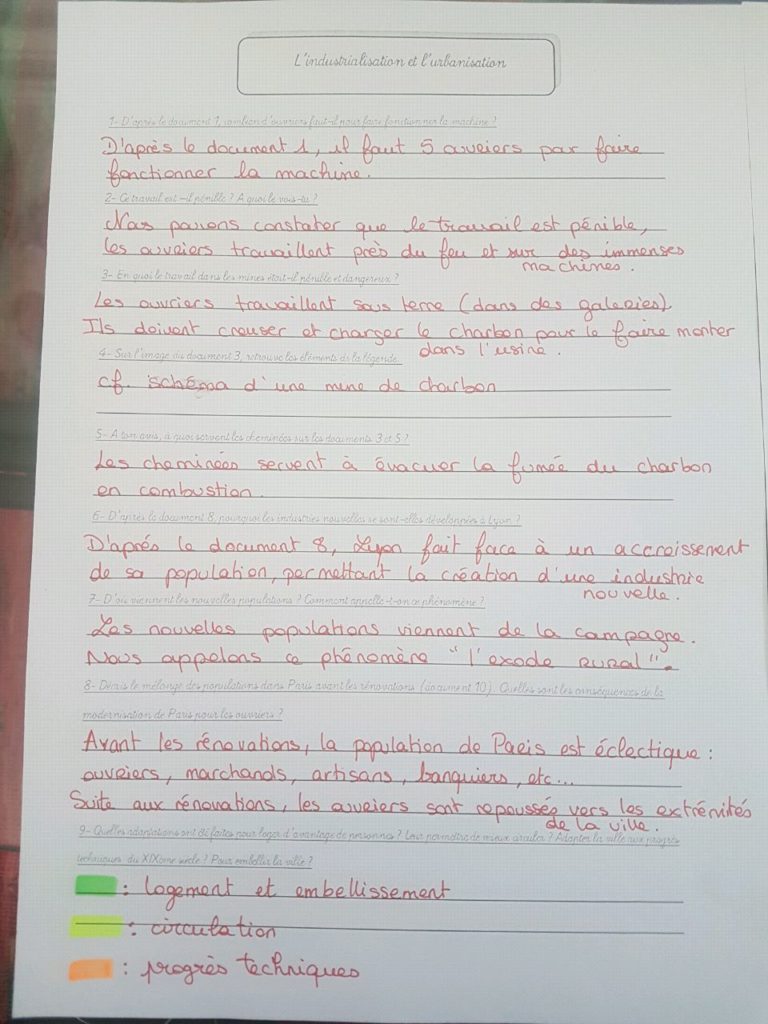 L'industrialisation et l'urbanisation
1- D'après le document 1, combien d'ouvriers faut-il pour faire fonctionner la machine ?
D'après le document 1, il faut 5 ouvriers par faire
fonctionner la machine.
2- Ce travail est-il pénible ? A quoi le vois-tu ?
Nous pouvons constater que le travail est pénible,
les ouvriers travaillent près du feu et sur des immenses
machines.
3- En quoi le travail dans les mines était-il pénible et dangereux ?
Les ouvriers travaillent sous terre (dans des galeries).
Ils doivent creuser et charger le charbon pour le faire monter
dans l'usine.
4- Sur l'image du document 3, retrouve les éléments de la légende.
cf. schéma d'une mine de charbon
5- A ton avis, à quoi servent les cheminées sur les documents 3 et 5 ?
Les cheminées servent à évacuer la fumée du charbon
en combustion.
6- D'après le document 8, pourquoi les industries nouvelles se sont-elles développées à Lyon ?
D'après le document 8, Lyon fait face à un accroissement
de sa population, permettant la création d'une industrie
nouvelle.
7- D'où viennent les nouvelles populations ? Comment appelle-t-on ce phénomène ?
Les nouvelles populations viennent de la campagne.
Nous appelons ce phénomène "l'exode rural".
8- Décris le mélange des populations dans Paris avant les rénovations (document 10). Quelles sont les conséquences de la
modernisation de Paris pour les ouvriers ?
Avant les rénovations, la population de Paris est éclectique :
ouvriers, marchands, artisans, banquiers, etc...
Suite aux rénovations, les ouvriers sont repoussés vers les extrémités
de la ville.
9- Quelles adaptations ont été faites pour loger d'avantage de personnes ? Leur permettre de mieux circuler ? Adapter la ville aux progrès
techniques du XIXème siècle ? Pour embellir la ville ?
: logement et embellissement
: circulation
: progrès techniques